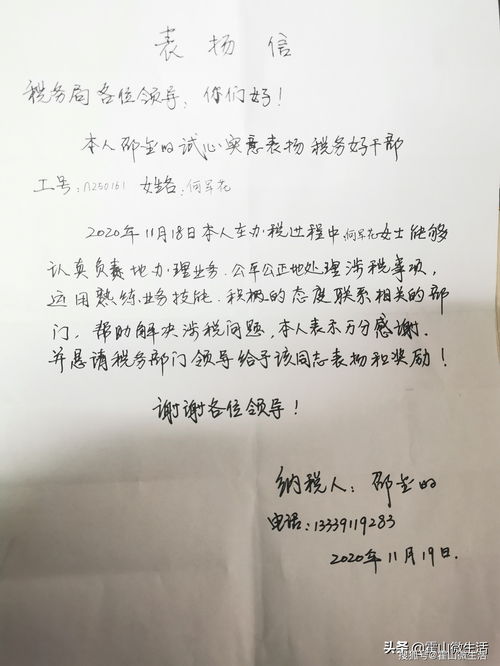 表扬信
税务局各位领导，你们好！
本人邵金明诚心实意表扬 税务好干部
工号：1250161 姓名：何军花
2020年11月18日本人在办税过程中，何军花女士能够
认真负责地办理业务．公平公正地处理涉税事项，
运用熟练业务技能．积极的态度联系相关的部
门，帮助解决涉税问题，本人表示万分感谢．
并恳请税务部门领导给予该同志表扬和奖励！
谢谢各位领导！
纳税人：邵金明
电话：13339119283
2020年11月19日．
头条@霍山微生活
搜狐号@霍山微生活